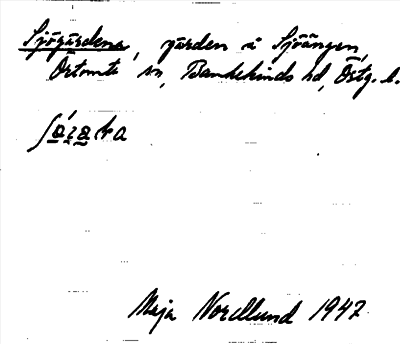 Sjögärdena, gården i Sjöängen,
Örtomta sn, Bankekinds hd, Östg. l.
Maja Nordlund 1947